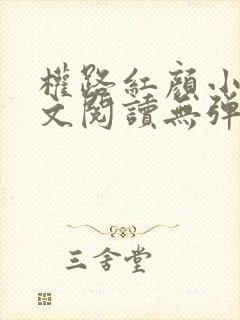 權路紅顏小
文閱讀無彈
三舍堂